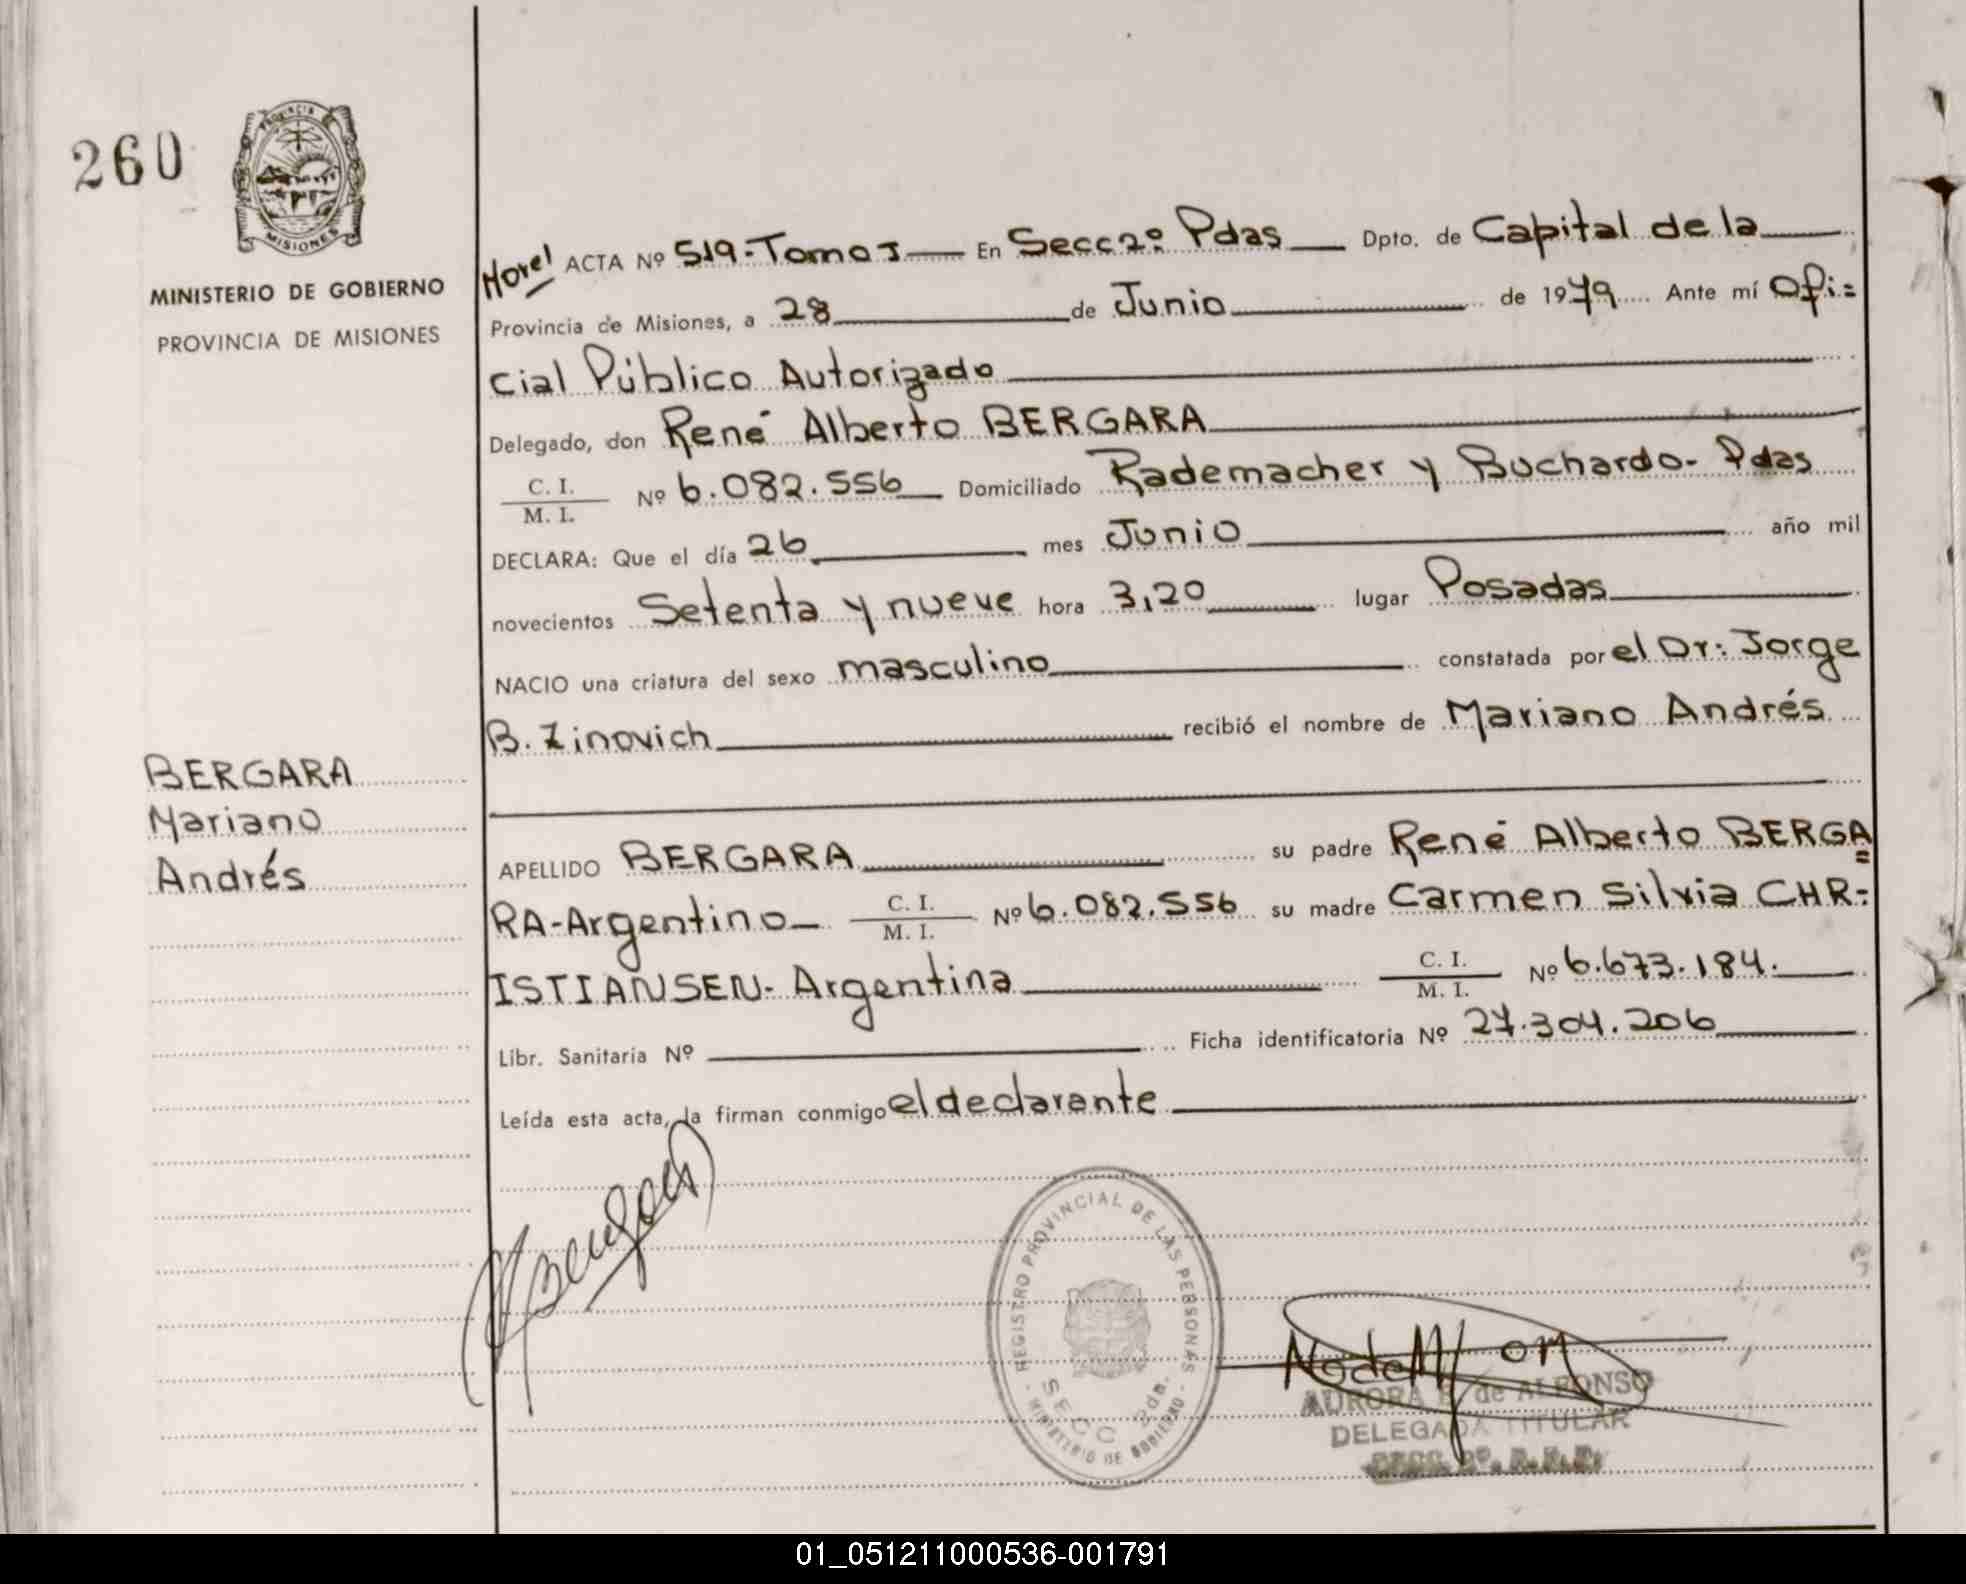 260
PROVINCIA DE
MISIONES
MINISTERIO DE GOBIERNO
PROVINCIA DE MISIONES
BERGARA
Mariano
Andrés
ACTA Nº 519-Tomo I En Secc 2º Pdas Dpto. de Capital de la
Provincia de Misiones, a 28 de Junio de 1979 Ante mí Ofi=
cial Público Autorizado
Delegado, don René Alberto BERGARA
C. I.
M. I. Nº 6.082.556 Domiciliado Rademacher y Buchardo- Pdas
DECLARA: Que el día 26 mes Junio año mil
novecientos Setenta y nueve hora 3,20 lugar Posadas
NACIO una criatura del sexo masculino constatada por el Dr: Jorge
B. Zinovich recibió el nombre de Mariano Andrés
APELLIDO BERGARA su padre René Alberto BERGA=
RA-Argentino C. I.
M. I. Nº 6.082.556 su madre Carmen Silvia CHR=
ISTIANSEN- Argentina C. I.
M. I. Nº 6.673.184.
Libr. Sanitaria Nº Ficha identificatoria Nº 27.304.206
Leída esta acta, la firman conmigo el declarante
REGISTRO PROVINCIAL DE LAS PERSONAS
SECC 2da.
- MINISTERIO DE GOBIERNO -
AURORA de ALFONSO
DELEGADA TITULAR
01_051211000536-001791